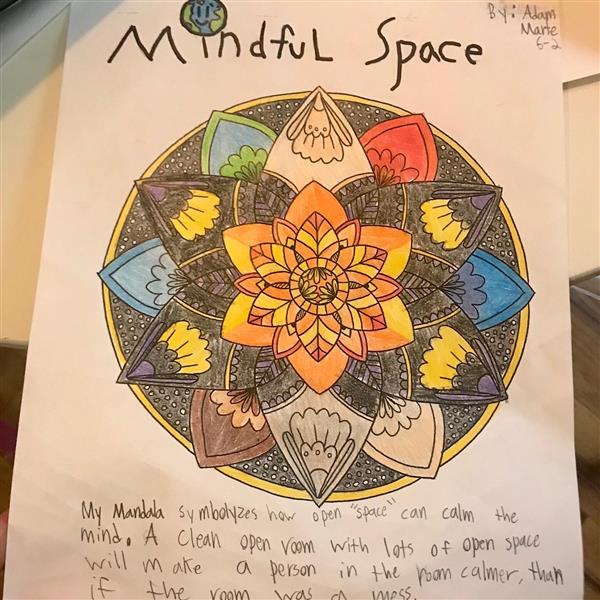 Mindful Space
By: Adam
Marte
6-2
My Mandala symbolyzes how open "space" can calm the
mind. A clean open room with lots of open space
will make a person in the room calmer, than
if the room was a mess.